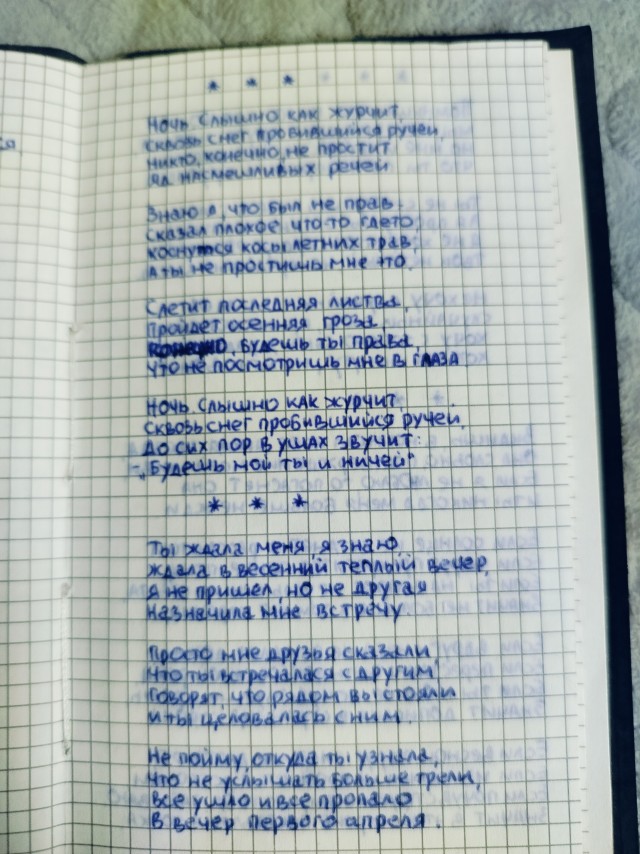 * * *
Ночь. Слышно как журчит
сквозь снег пробившийся ручей,
никто, конечно, не простит
яд насмешливых речей

Знаю я, что был не прав
сказал плохое что-то где-то,
коснутся косы летних трав,
а ты не простишь мне это.

Слетит последняя листва,
пройдет осенняя гроза,
конечно, будешь ты права,
что не посмотришь мне в глаза

Ночь. Слышно как журчит
Сквозь снег пробившийся ручей,
До сих пор в ушах звучит:
-„Будешь мой ты и ничей"
* * *
Ты ждала меня, я знаю,
ждала в весенний теплый вечер,
я не пришел, но не другая
назначила мне встречу.

Просто мне друзья сказали
Что ты встречалася с другим
Говорят, что рядом вы стояли
и ты целовалась с ним

Не пойму, откуда ты узнала,
что не услышать больше трели,
все ушло и все пропало
в вечер первого апреля.
ся